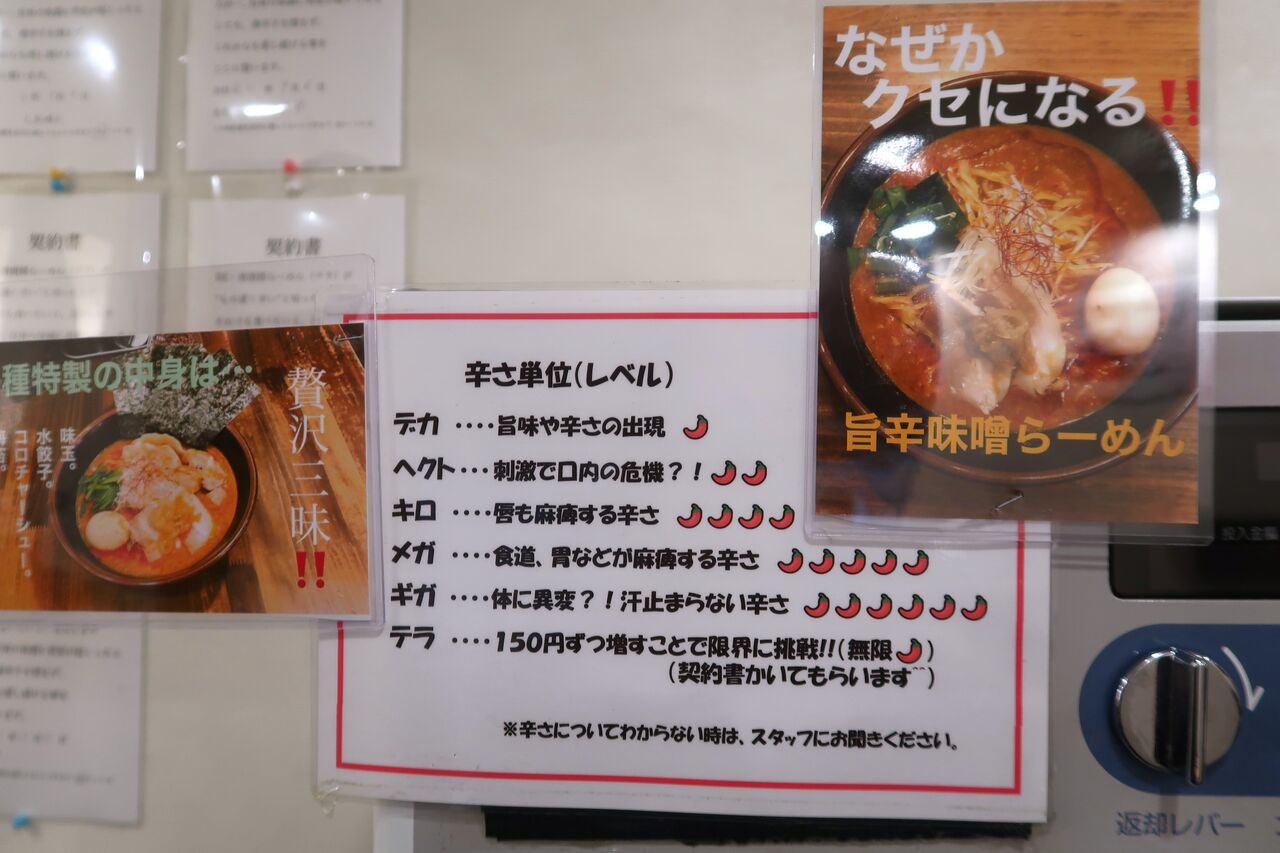 なぜか
クセになる‼
旨辛味噌らーめん
契約書
契約書
種特製の中身は…
贅沢三昧‼
味玉。
水餃子。
コロコロチャーシュー。
海苔。
辛さ単位(レベル)
デカ ‥‥旨味や辛さの出現
ヘクト‥‥刺激で口内の危機?!
キロ ‥‥唇も麻痺する辛さ
メガ ‥‥食道、胃などが麻痺する辛さ
ギガ ‥‥体に異変?!汗止まらない辛さ
テラ ‥‥150円ずつ増すことで限界に挑戦!!(無限🌶)
(契約書かいてもらいます^^)
※辛さについてわからない時は、スタッフにお聞きください。
投入金額
返却レバー